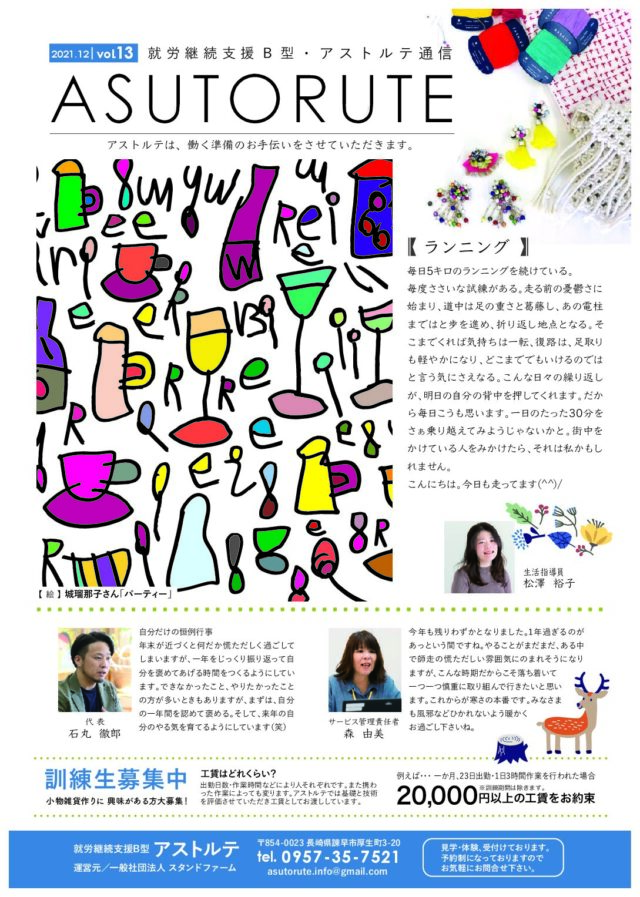 2021.12 vol13 就労継続支援B型・アストルテ通信
ASUTORUTE
アストルテは、働く準備のお手伝いをさせていただきます。
【 ランニング 】
毎日5キロのランニングを続けている。
毎度ささいな試練がある。走る前の憂鬱さに
始まり、道中は足の重さと葛藤し、あの電柱
まではと歩を進め、折り返し地点となる。そ
こまでくれば気持ちは一転、復路は、足取り
も軽やかになり、どこまででもいけるのでは
と言う気にさえなる。こんな日々の繰り返し
が、明日の自分の背中を押してくれます。だか
ら毎日こうも思います。一日のたった30分を
さぁ乗り越えてみようじゃないかと。街中を
かけている人をみかけたら、それは私かもし
れません。
こんにちは。今日も走ってます(^^)/
生活指導員
松澤 裕子
【 絵 】城瑠那子さん「パーティー」
自分だけの恒例行事
年末が近づくと何だか慌ただしく過ごして
しまいますが、一年をじっくり振り返って自
分を褒めてあげる時間をつくるようにしてい
ます。できなかったこと、やりたかったこと
の方が多いときもありますが、まずは、自分
の一年間を認めて褒める。そして、来年の自
分のやる気を育てるようにしています(笑)
代 表
石丸 徹郎
今年も残りわずかとなりました。1年過ぎるのが
あっという間ですね。やることがまだまだ、ある中
で師走の慌ただしい雰囲気にのまれそうになり
ますが、こんな時期だからこそ落ち着いて
一つ一つ慎重に取り組んで行きたいと思い
ます。これからが寒さの本番です。みなさま
も風邪などひかれないよう暖かく
お過ごし下さいね。
サービス管理責任者
森 由美
訓練生募集中
小物雑貨作りに 興味がある方大募集!
工賃はどれくらい?
出勤日数・作業時間などにより人それぞれです。また携わ
った作業によっても変ります。アストルテでは基礎と技術
を評価させていただき工賃としてお渡ししています。
例えば・・・ 一か月、23日出勤・1日3時間作業を行われた場合
※訓練期間は除きます。
20,000円以上の工賃をお約束
就労継続支援B型 アストルテ
運営元/一般社団法人 スタンドファーム
〒854-0023 長崎県諫早市厚生町3-20
tel. 0957-35-7521
asutorute.info@gmail.com
見学・体験、受付けております。
予約制になっておりますので
お気軽にお問合せ下さい。